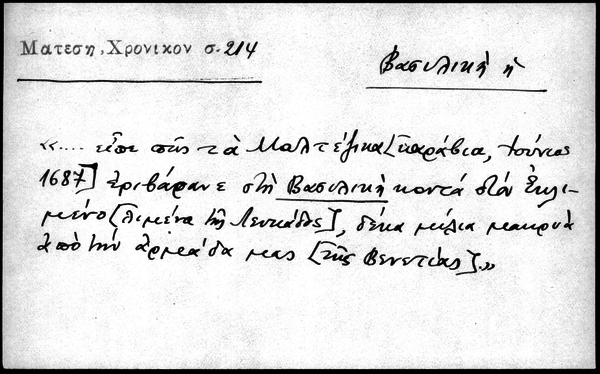 Ματεση, Χρονικον σ. 214
Βασιλική ἡ
«.... εἶπε πῶς τὰ Μαλτέζικα [καράβια, Ἰούνιος
1687] ἐριβάρανε στὴ Βασιλικὴ κοντά στὸν Ἐκλι-
μένο [λιμένα τῆς Λευκάδος], δέκα μίλια μακρυὰ
ἀπὸ τὴν ἀρμάδα μας [τῆς Βενετίας].»